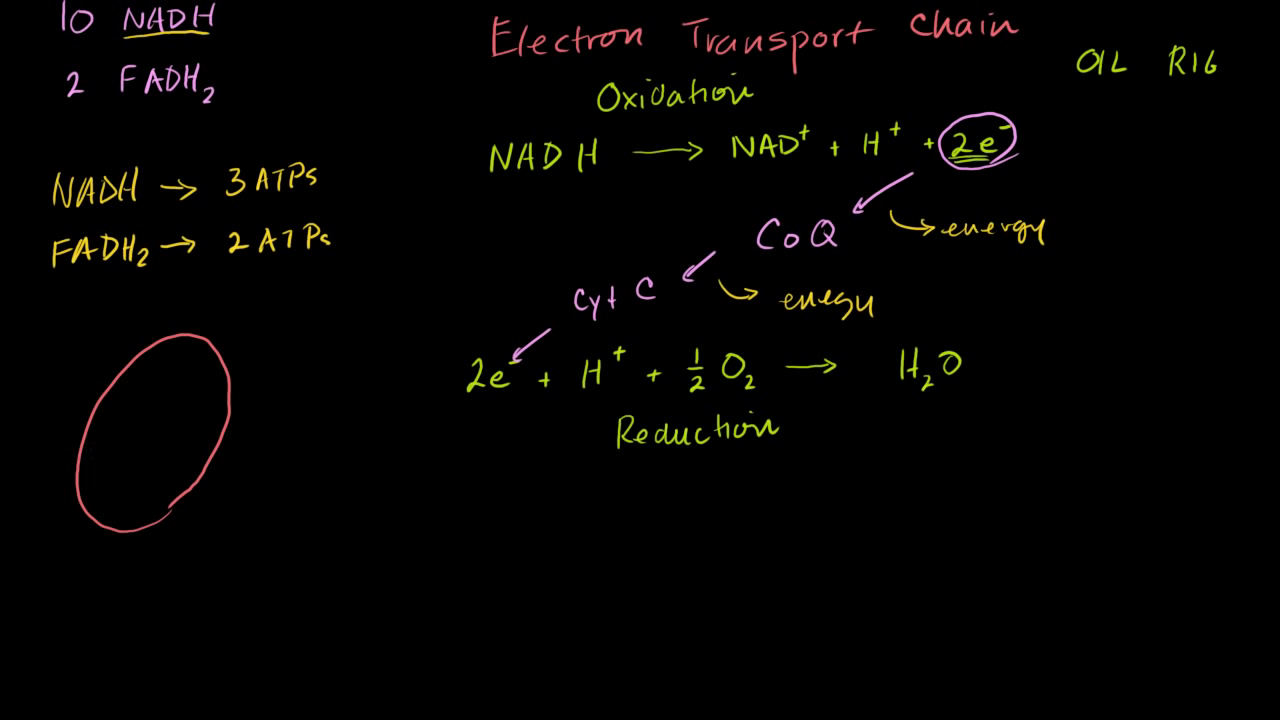 10 NADH
2 FADH₂
NADH → 3 ATPs
FADH₂ → 2 ATPs
Electron Transport Chain
OIL RIG
Oxidation
NADH → NAD⁺ + H⁺ + 2e⁻
CoQ → energy
Cyt C → energy
2e⁻ + H⁺ + ½ O₂ → H₂O
Reduction